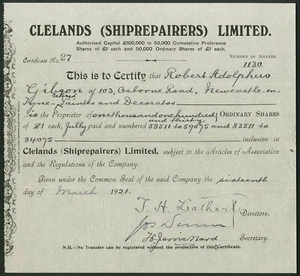 CLELANDS (SHIPREPAIRERS) LIMITED.
Authorised Capital £100,000 in 50,000 Cumulative Preference
Shares of £1 each and 50,000 Ordinary Shares of £1 each.
Certificate No. 27
NUMBER OF SHARES,
1130
This is to Certify that Robert Adolphus
Gibson of 103, Osborne Road, Newcastle-on-
Tyne, Painter and Decorator
is the Proprietor of one thousand one hundred and thirty ORDINARY SHARES
of £1 each, fully paid and numbered 58511 to 59075 and 33511 to
34075 inclusive in
Clelands (Shiprepairers) Limited, subject to the Articles of Association
and the Regulations of the Company.
Given under the Common Seal of the said Company this sixteenth
day of March 1921.
Directors.
Secretary.
N.B.—No Transfer can be registered without the production of this Certificate.